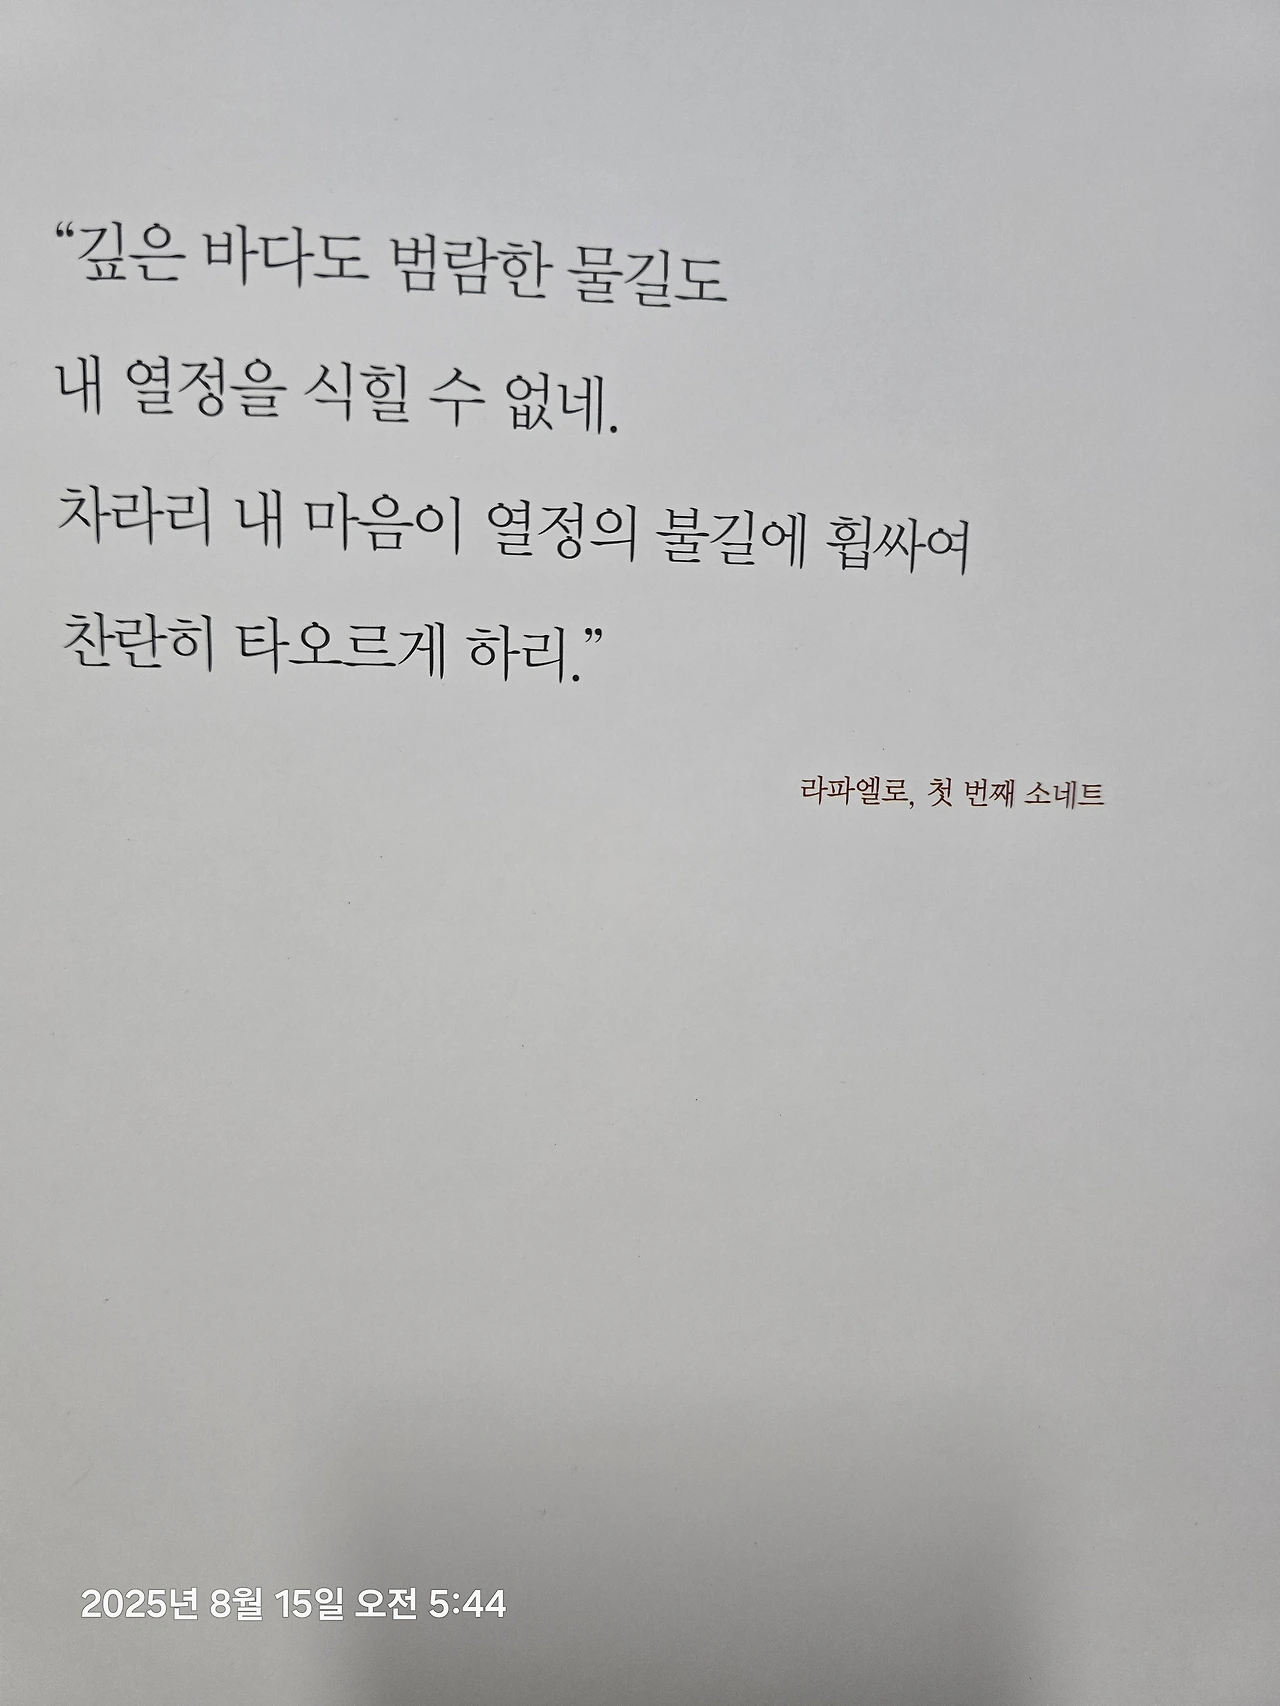 “깊은 바다도 범람한 물길도
내 열정을 식힐 수 없네.
차라리 내 마음이 열정의 불길에 휩싸여
찬란히 타오르게 하리.”
라파엘로, 첫 번째 소네트
2025년 8월 15일 오전 5:44